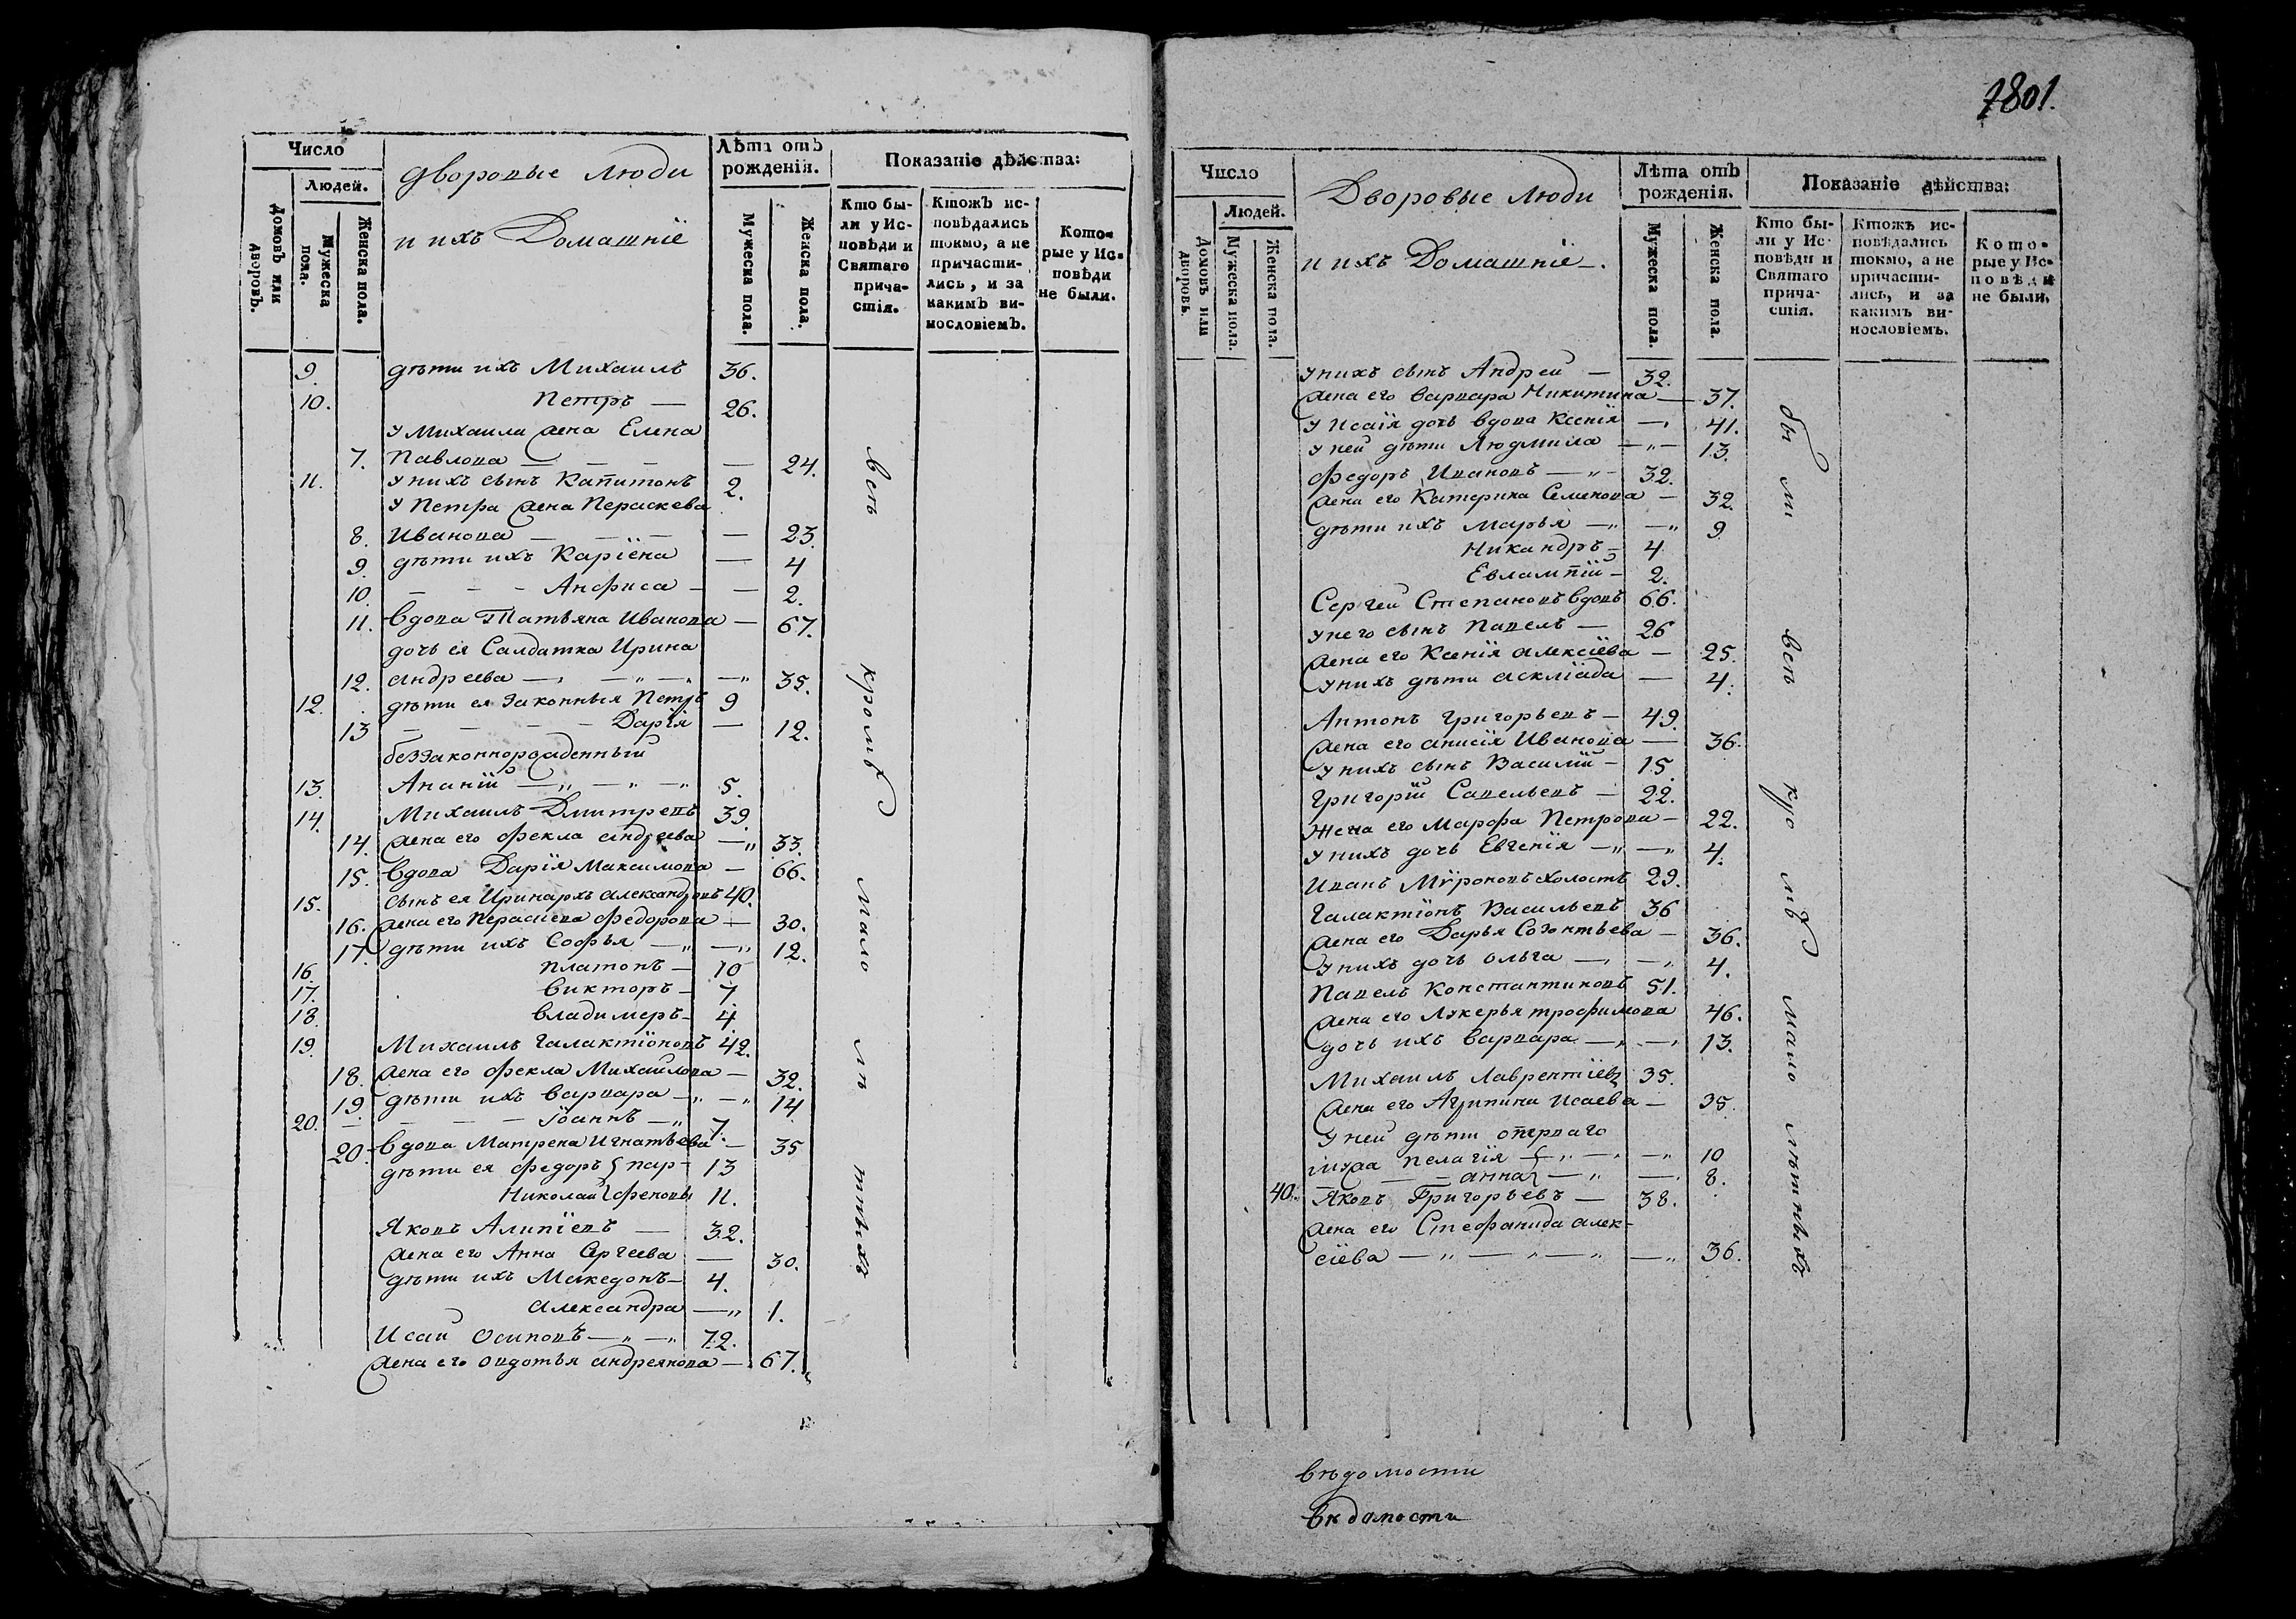 Число
Людей.
Домовъ или дворовъ.
Мужеска пола.
Женска пола.
дворовые люди
и ихъ Домашніе
Лѣта отъ рожденія.
Мужеска пола.
Женска пола.
Показаніе дѣйства:
Кто были у Исповѣди и Святаго причастія.
Ктожъ исповѣдались токмо, а не причастились, и за какимъ винословіемъ.
Которые у Исповѣди не были.
9. дѣти ихъ Михаилъ 36.
10. Петръ — 26.
у Михаила жена Елена
7. Павлова — — — — 24.
11. у нихъ сынъ Капитонъ 2.
у Петра жена Параскева
8. Иванова — — — — 23.
9. дѣти ихъ — 4
10. — — - Анфиса - — 2.
11. вдова Татьяна Иванова — 67.
дочь ея Салдатка Ирина
12. андреева — — — — 35.
12. дѣти ея законныя Петръ 9
13 — — — Дарія — 12.
беззаконнорожденный
13. Ананій — — — 5.
14. Михаилъ Дмитревъ 39.
14. жена его Фекла андреева — 33.
15. вдова Дарія Максимова — 66.
15. сынъ ея Иринархъ александровъ 40.
16. жена его Федорова — 30.
17. дѣти ихъ Софья — — 12.
16. Платонъ — 10
17. Викторъ — 7
18. владимеръ - 4.
19. Михаилъ Галактіоновъ 42.
18. жена его Фекла Михайлова — 32.
19. дѣти ихъ варвара — — 14
20. — — — Іоаннъ — 7.
20. вдова Матрена Игнатьева — 35
дѣти ея Федоръ } пар- 13
Николай } феновы 11.
Яковъ Алипіевъ — 32.
жена его Анна Сергеева — 30.
дѣти ихъ Македонъ — 4.
александра — 1.
Исаи осиповъ — — 72.
жена его овдотья андреянова — 67.
всѣ кромѣ мало лѣтнѣхъ
1801.
Число
Людей.
Домовъ или дворовъ.
Мужеска пола.
Женска пола.
Дворовые люди
и ихъ Домашніе.
Лѣта отъ рожденія.
Мужеска пола.
Женска пола.
Показаніе дѣйства:
Кто были у Исповѣди и Святаго причастія.
Ктожъ исповѣдались токмо, а не причастились, и за какимъ винословіемъ.
Которые у Исповѣди не были.
у нихъ сынъ Андрей — 32.
жена его варвара Никитина — 37.
у Исаія дочь вдова Ксенія — 41.
у ней дѣти Людмила — — 13.
Федоръ Ивановъ — 32.
жена его Катерина Семенова — 32.
дѣти ихъ Марья — — 9
Никандръ — 4
Евлампій — 2.
Сергей Степановъ вдовъ 66.
у него сынъ Павелъ — 26
жена его Ксенія алексіева — 25.
у нихъ дѣти асклїада — 4.
Антонъ григорьевъ — 49.
жена его анисія Иванова — 36.
у нихъ сынъ Василій — 15.
григорій Савельевъ — 22.
жена его Марфа Петрова — 22.
у нихъ дочь Евгенія — — 4.
Иванъ Мѵроновъ холостъ 29.
Галактіонъ Васильевъ 36
жена его Дарья Созонтьева — 36.
у нихъ дочь ольга — — 4.
Павелъ константиновъ 51.
жена его Лукерья трофимова 46.
дочь ихъ варвара — — 13.
Михаилъ Лаврентіевъ 35.
жена его Агрипина Исаева — 35.
у ней дѣти отперваго
мужа Пелагія — — — 10
— — анна — — 8.
40. Яковъ Григорьевъ — 38.
жена его Стефанида алек-
сіева — — — — 36.
бы ли всѣ кро мѣ мало лѣтнѣхъ
вѣдомости
вѣдомости